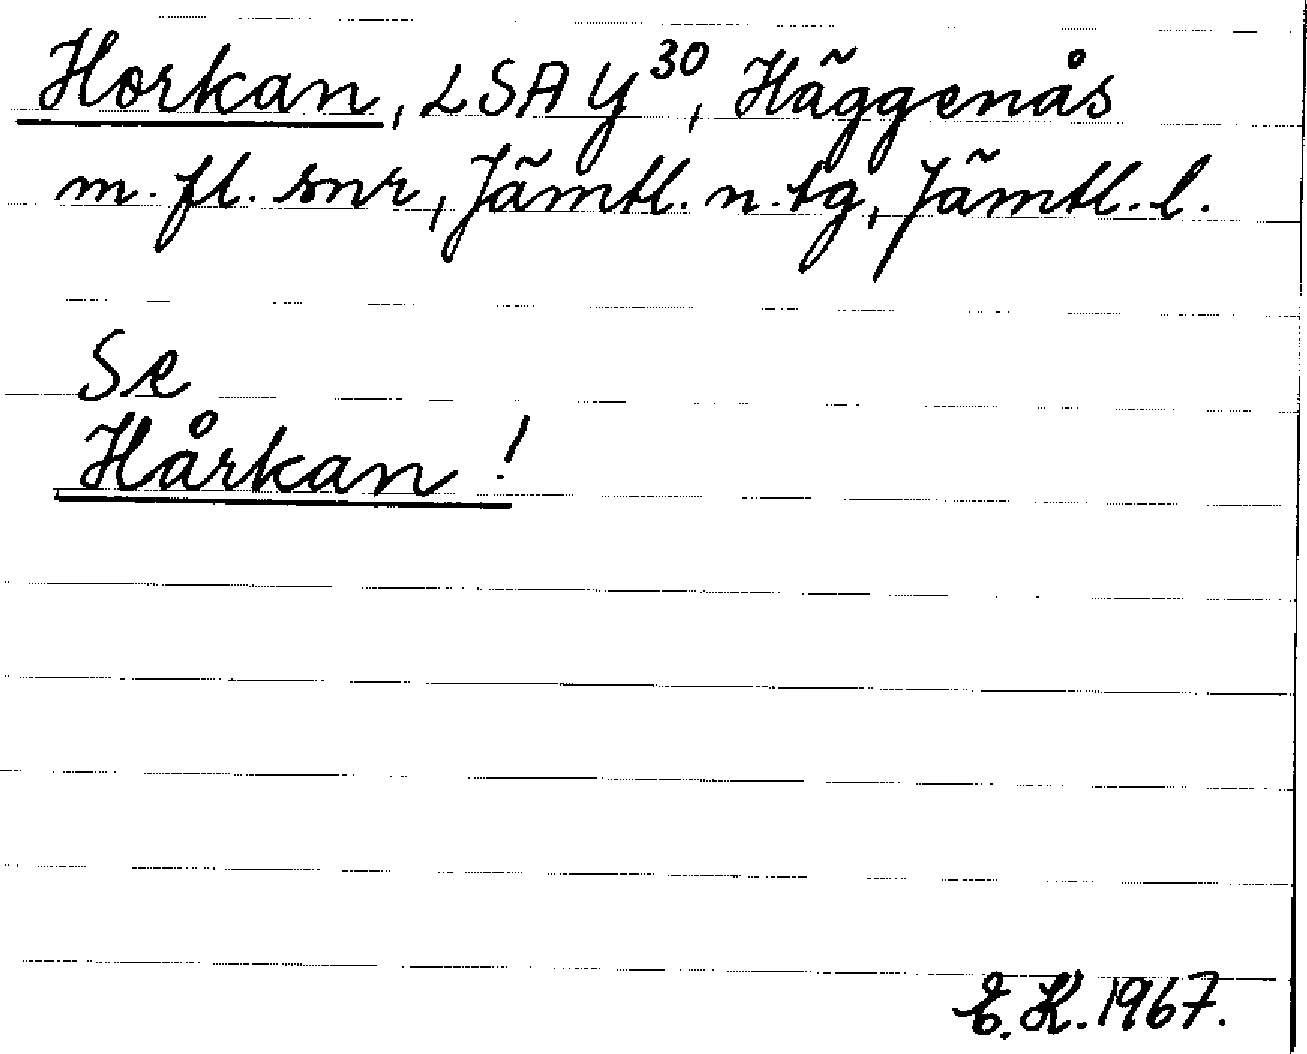 Horkan, LSA Y³⁰, Häggenås
m. fl. snr, Jämtl. n. tg, Jämtl. l.
Se
Hårkan!
E. K. 1967.